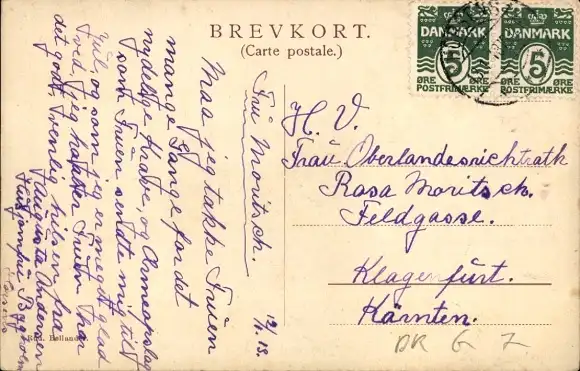 BREVKORT.
(Carte postale.)
DANMARK
5
ØRE
POSTFRIMÆRKE
DANMARK
5
ØRE
POSTFRIMÆRKE
H. V.
Frau Oberlandesrichtrath
Rosa Moritsch.
Feldgasse.
Klagenfurt.
Kärnten.
DK G 7
12/1. 13.
Fru Moritsch.
Maa jeg takke Fruen
mange Gange for det
nydelige Krave, og Ærmeopslag
som Fruen sendte mig til
Jul, og som jeg er meget glad
ved, jeg haaber Fruen har
det godt. Venlig hilsen fra
Augusta Andersen
Eneret. Bellander.